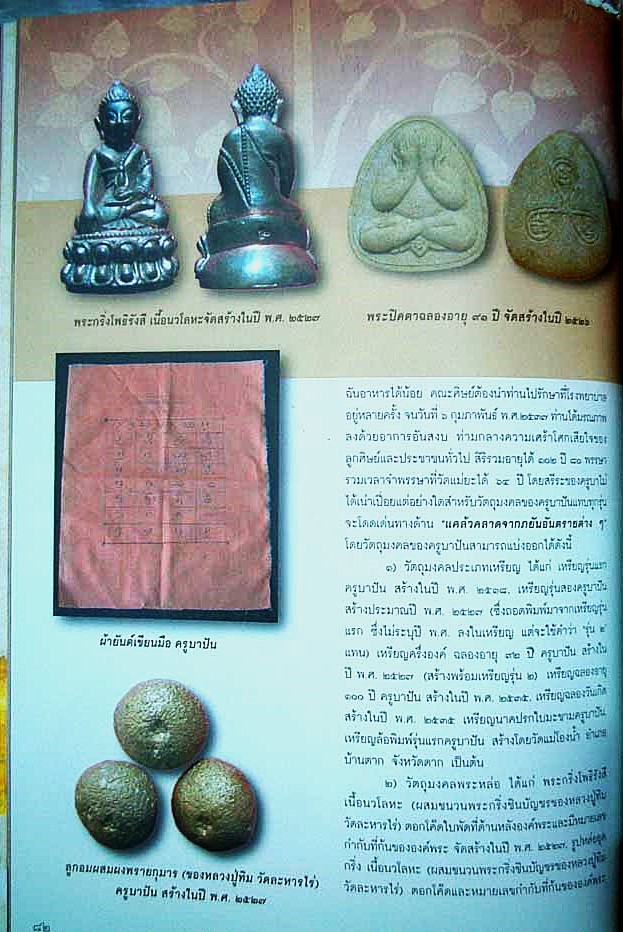 พระกริ่งโพธิรังสี เนื้อนวโลหะจัดสร้างในปี พ.ศ. ๒๕๒๗
พระปิดตาฉลองอายุ ๙๑ ปี จัดสร้างในปี ๒๕๒๖
ผ้ายันต์เขียนมือ ครูบาปัน
ลูกอมผสมผงพรายกุมาร (ของหลวงปู่ทิม วัดละหารไร่)
ครูบาปัน สร้างในปี พ.ศ. ๒๕๒๗
๘๒
ฉันอาหารได้น้อย คณะศิษย์ต้องนำท่านไปรักษาที่โรงพยาบาล
อยู่หลายครั้ง จนวันที่ ๖ กุมภาพันธ์ พ.ศ.๒๕๓๗ ท่านได้มรณภาพ
ลงด้วยอาการอันสงบ ท่ามกลางความเศร้าโศกเสียใจของ
ลูกศิษย์และประชาชนทั่วไป สิริรวมอายุได้ ๑๐๒ ปี ๘๐ พรรษา
รวมเวลาจำพรรษาที่วัดแม่ยะได้ ๖๔ ปี โดยสรีระของครูบาไม่
ได้เน่าเปื่อยแต่อย่างใดสำหรับวัตถุมงคลของครูบาปันแทบทุกรุ่น
จะโดดเด่นทางด้าน "แคล้วคลาดจากภยันอันตรายต่าง ๆ"
โดยวัตถุมงคลของครูบาปันสามารถแบ่งออกได้ดังนี้
๑) วัตถุมงคลประเภทเหรียญ ได้แก่ เหรียญรุ่นแรก
ครูบาปัน สร้างในปี พ.ศ. ๒๕๑๘, เหรียญรุ่นสองครูบาปัน
สร้างประมาณปี พ.ศ. ๒๕๒๗ (ซึ่งถอดพิมพ์มาจากเหรียญรุ่น
แรก ซึ่งไม่ระบุปี พ.ศ. ลงในเหรียญ แต่จะใช้คำว่า "รุ่น ๒"
แทน) เหรียญครึ่งองค์ ฉลองอายุ ๙๒ ปี ครูบาปัน สร้างใน
ปี พ.ศ. ๒๕๒๗ (สร้างพร้อมเหรียญรุ่น ๒) เหรียญฉลองอายุ
๑๐๐ ปี ครูบาปัน สร้างในปี พ.ศ. ๒๕๓๕, เหรียญฉลองวันเกิด
สร้างในปี พ.ศ. ๒๕๓๕ เหรียญนาคปรกใบมะขามครูบาปัน,
เหรียญล้อพิมพ์รุ่นแรกครูบาปัน สร้างโดยวัดแม่โองน้ำ อำเภอ
บ้านตาก จังหวัดตาก เป็นต้น
๒) วัตถุมงคลพระหล่อ ได้แก่ พระกริ่งโพธิรังสี
เนื้อนวโลหะ (ผสมชนวนพระกริ่งชินบัญชรของหลวงปู่ทิม
วัดละหารไร่) ตอกโค๊ดใบพัดที่ด้านหลังองค์พระและมีหมายเลข
กำกับที่ก้นขององค์พระ จัดสร้างในปี พ.ศ. ๒๕๒๗, รูปหล่ออุด
กริ่ง เนื้อนวโลหะ (ผสมชนวนพระกริ่งชินบัญชรของหลวงปู่ทิม
วัดละหารไร่) ตอกโค๊ดและหมายเลขกำกับที่ก้นขององค์พระ